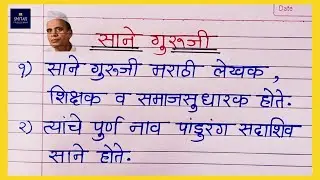 Date
साने गुरुजी
१) साने गुरुजी मराठी लेखक,
शिक्षक व समाजसुधारक होते.
२) त्यांचे पुर्ण नाव पांडुरंग सदाशिव
साने होते.